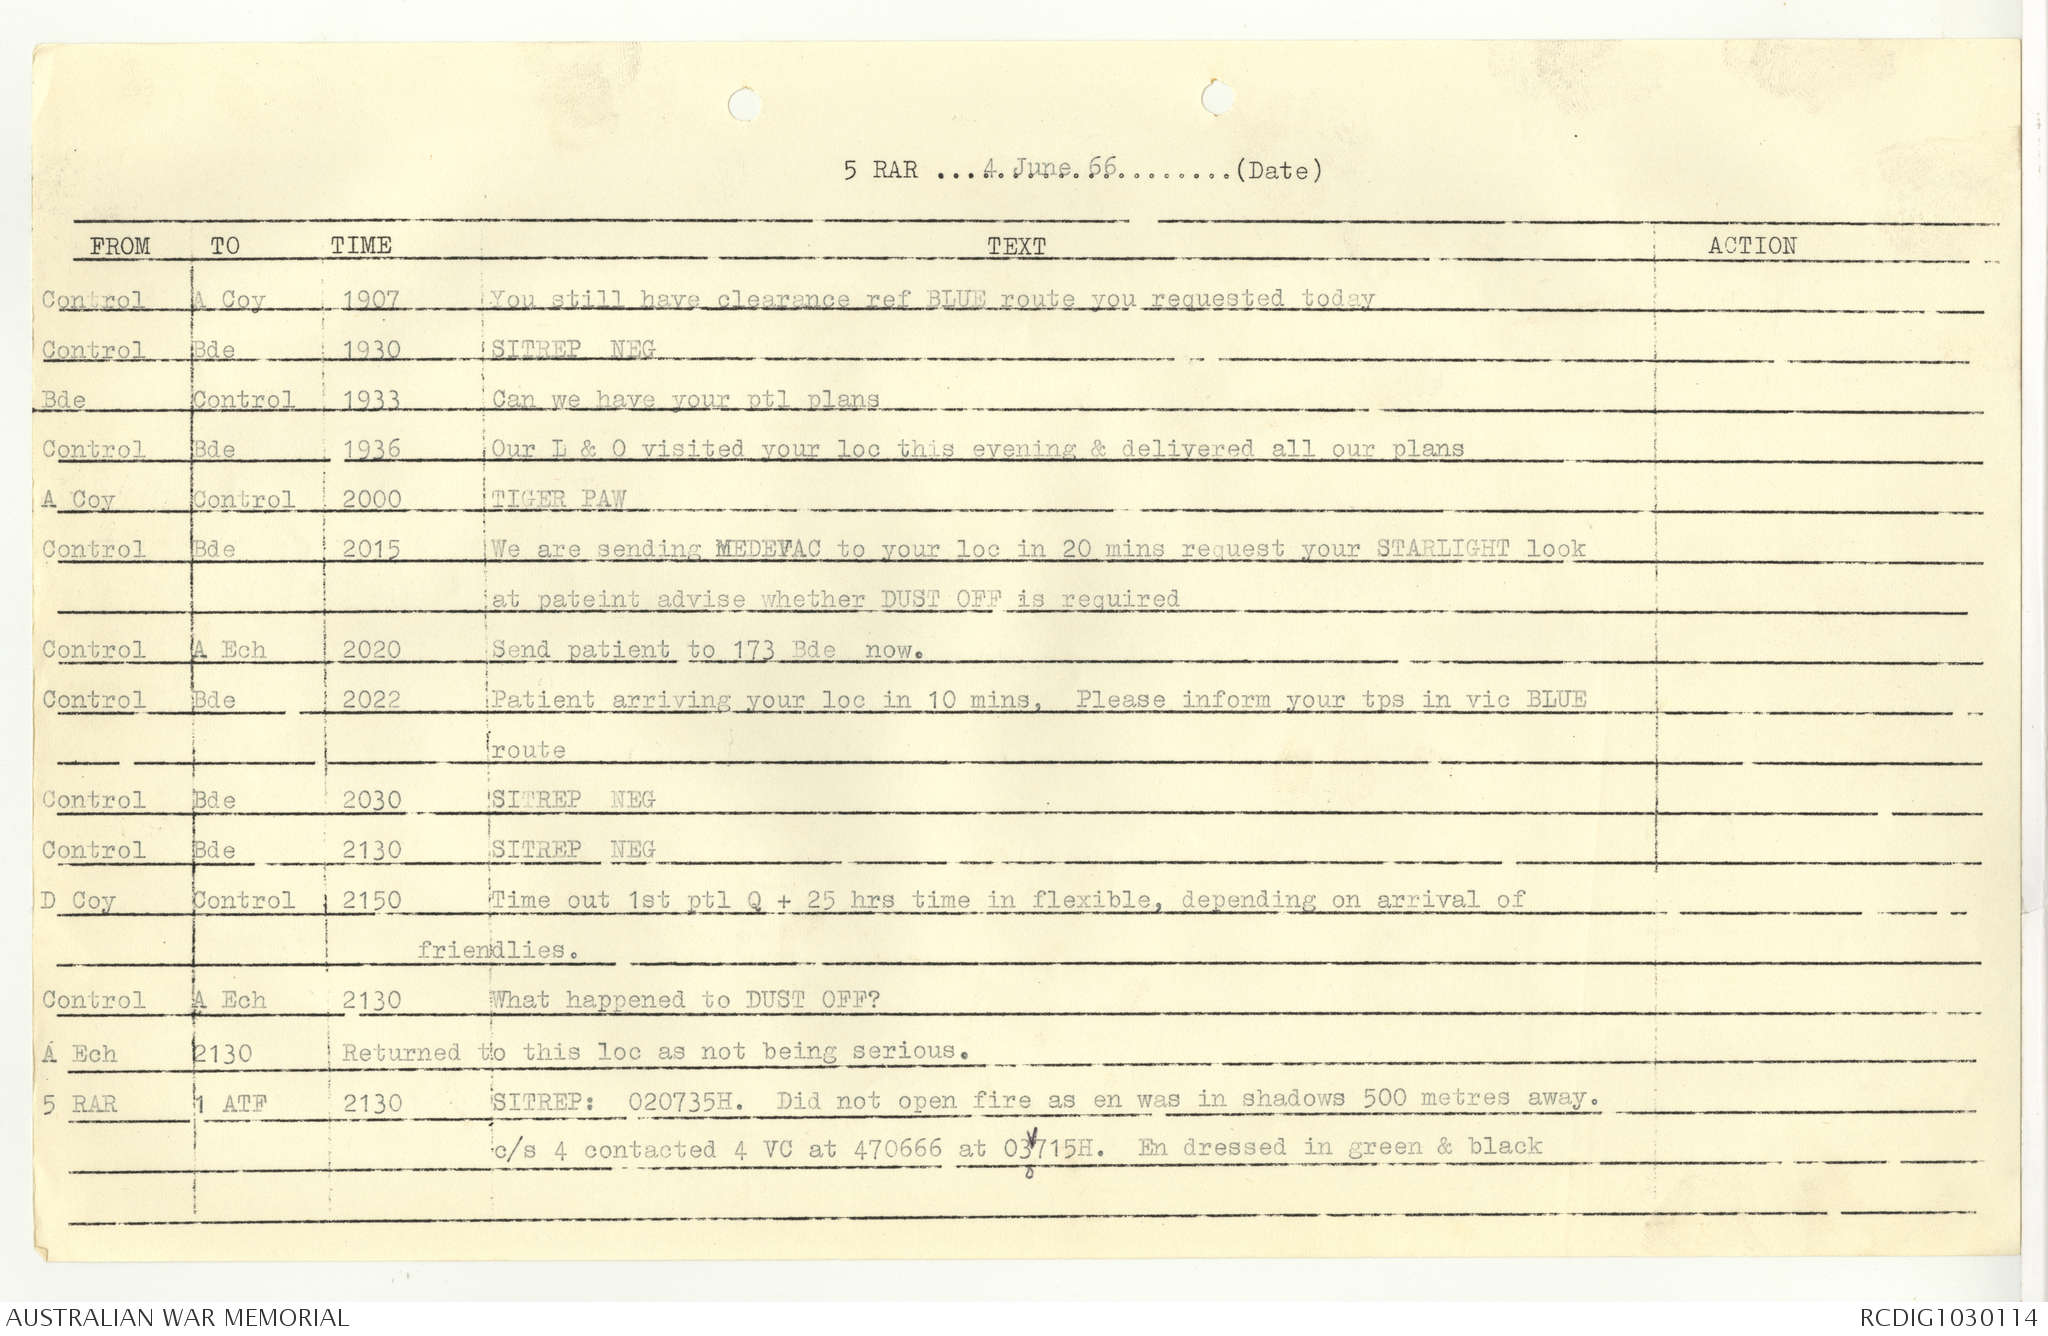 5 RAR ....4 June 66.........(Date)
FROM TO TIME TEXT ACTION
Control A Coy 1907 You still have clearance ref BLUE route you requested today
Control Bde 1930 SITREP NEG
Bde Control 1933 Can we have your ptl plans
Control Bde 1936 Our L & O visited your loc this evening & delivered all our plans
A Coy Control 2000 TIGER PAW
Control Bde 2015 We are sending MEDEVAC to your loc in 20 mins request your STARLIGHT look
at pateint advise whether DUST OFF is required
Control A Ech 2020 Send patient to 173 Bde now.
Control Bde 2022 Patient arriving your loc in 10 mins, Please inform your tps in vic BLUE
route
Control Bde 2030 SITREP NEG
Control Bde 2130 SITREP NEG
D Coy Control 2150 Time out 1st ptl Q + 25 hrs time in flexible, depending on arrival of
friendlies.
Control A Ech 2130 What happened to DUST OFF?
A Ech 2130 Returned to this loc as not being serious.
5 RAR 1 ATF 2130 SITREP: 020735H. Did not open fire as en was in shadows 500 metres away.
c/s 4 contacted 4 VC at 470666 at 03715H. En dressed in green & black
0
AUSTRALIAN WAR MEMORIAL RCDIG1030114